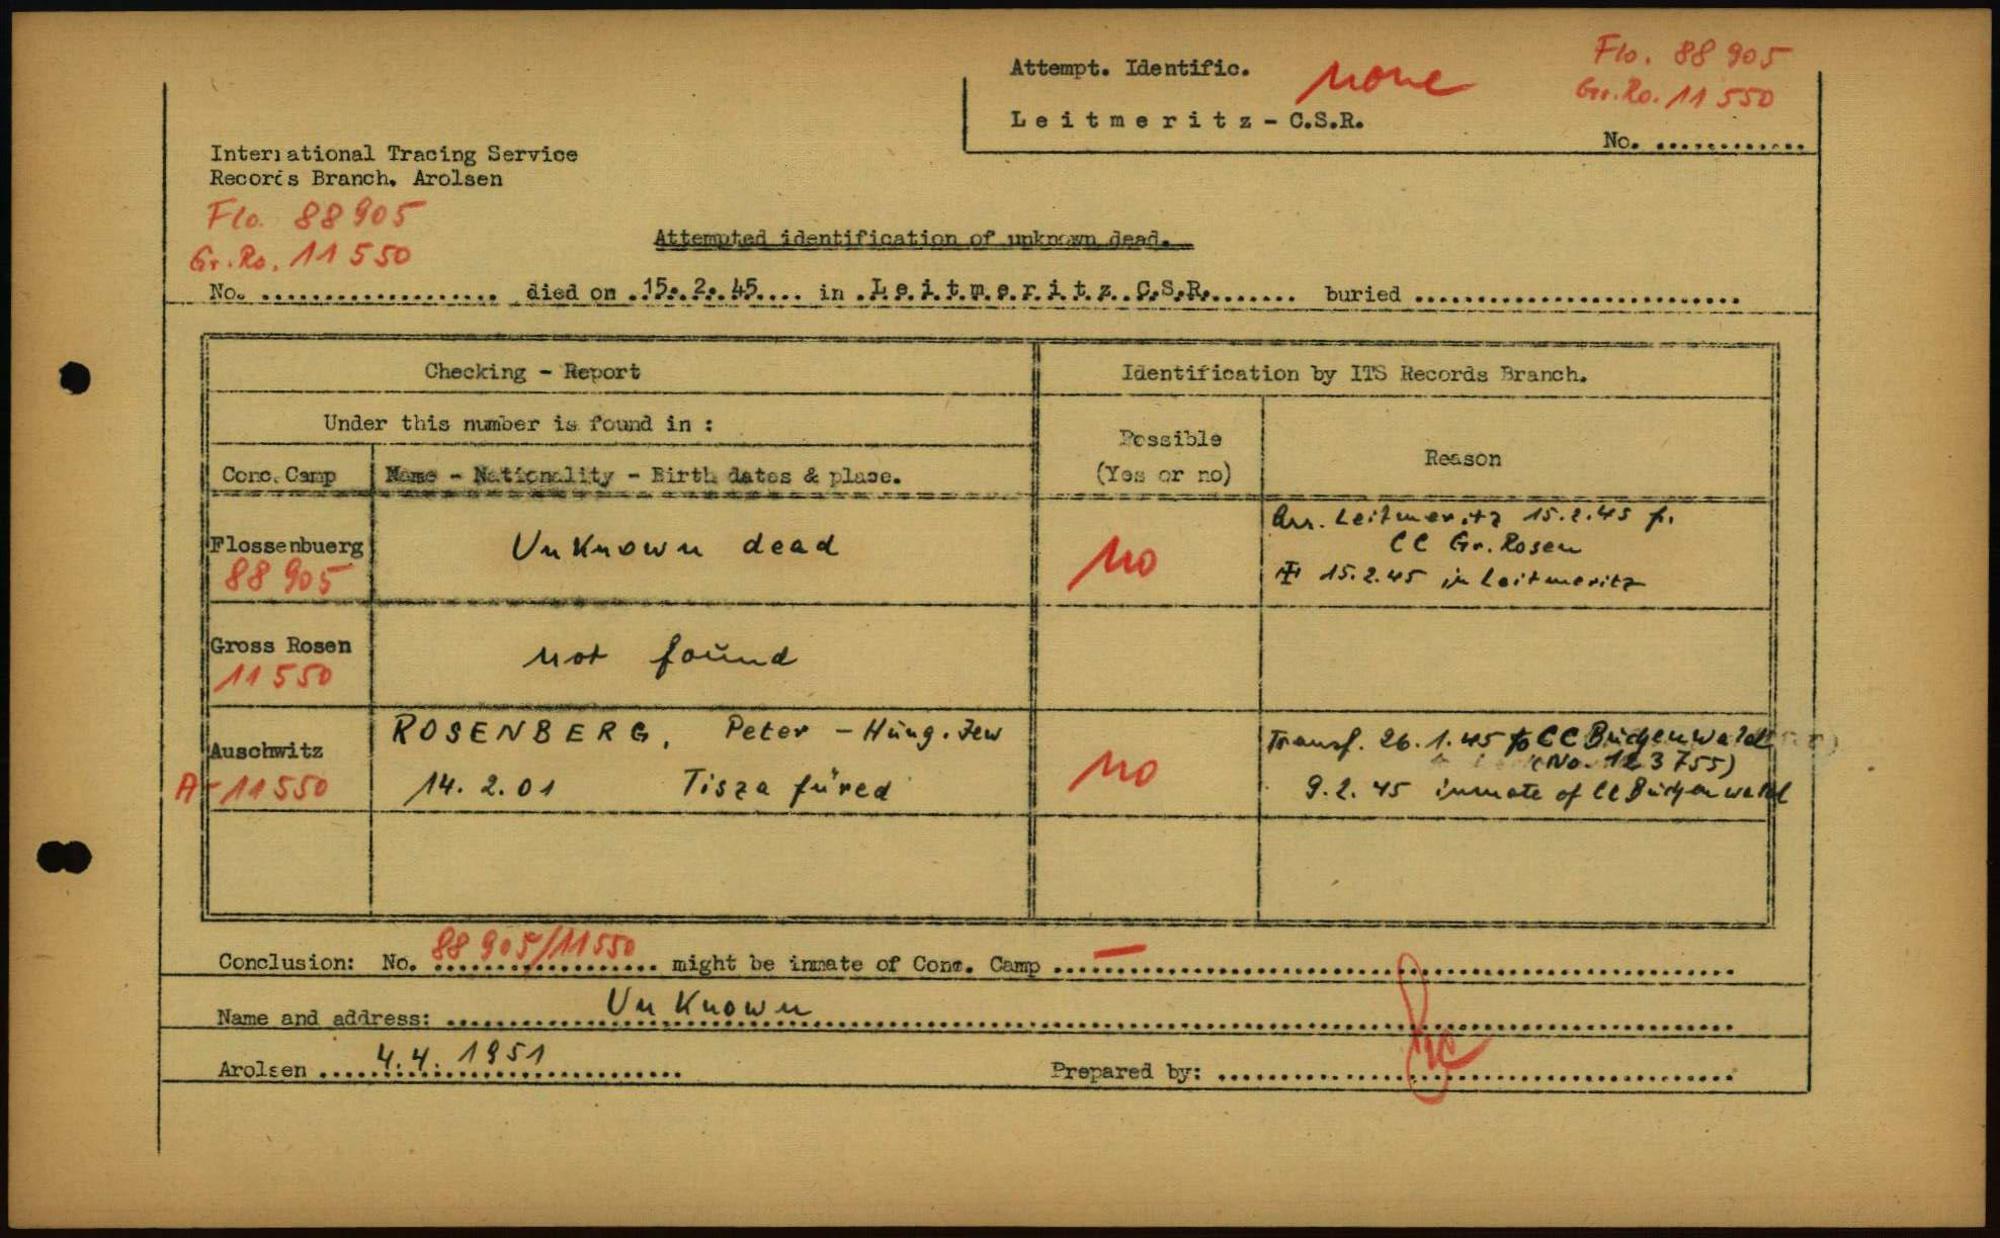 Attempt. Identific. none
Flo. 88 905
Gr. Ro. 11 550
Leitmeritz - C.S.R.
No. .............
International Tracing Service
Records Branch. Arolsen
Flo. 88 905
Gr. Ro. 11 550
Attempted identification of unknown dead.
No. .................... died on .15. 2. 45.... in .Leitmeritz C.S.R....... buried ...........................
Checking - Report
Identification by ITS Records Branch.
Under this number is found in :
Possible
(Yes or no)
Reason
Conc. Camp
Name - Nationality - Birth dates & place.
Flossenbuerg
88 905
Unknown dead
no
Arr. Leitmeritz 15.2.45 f.
CC Gr. Rosen
15.2.45 in Leitmeritz
Gross Rosen
11 550
not found
Auschwitz
A-11550
ROSENBERG, Peter - Hung. Jew
14. 2. 01 Tisza füred
no
Transf. 26. 1. 45 to CC Buchenwald
(No. 123755)
9. 2. 45 inmate of CC Buchenwald
Conclusion: No. 88 905/11550 might be inmate of Conc. Camp —
Name and address: Unknown
Arolsen 4.4. 1951
Prepared by: